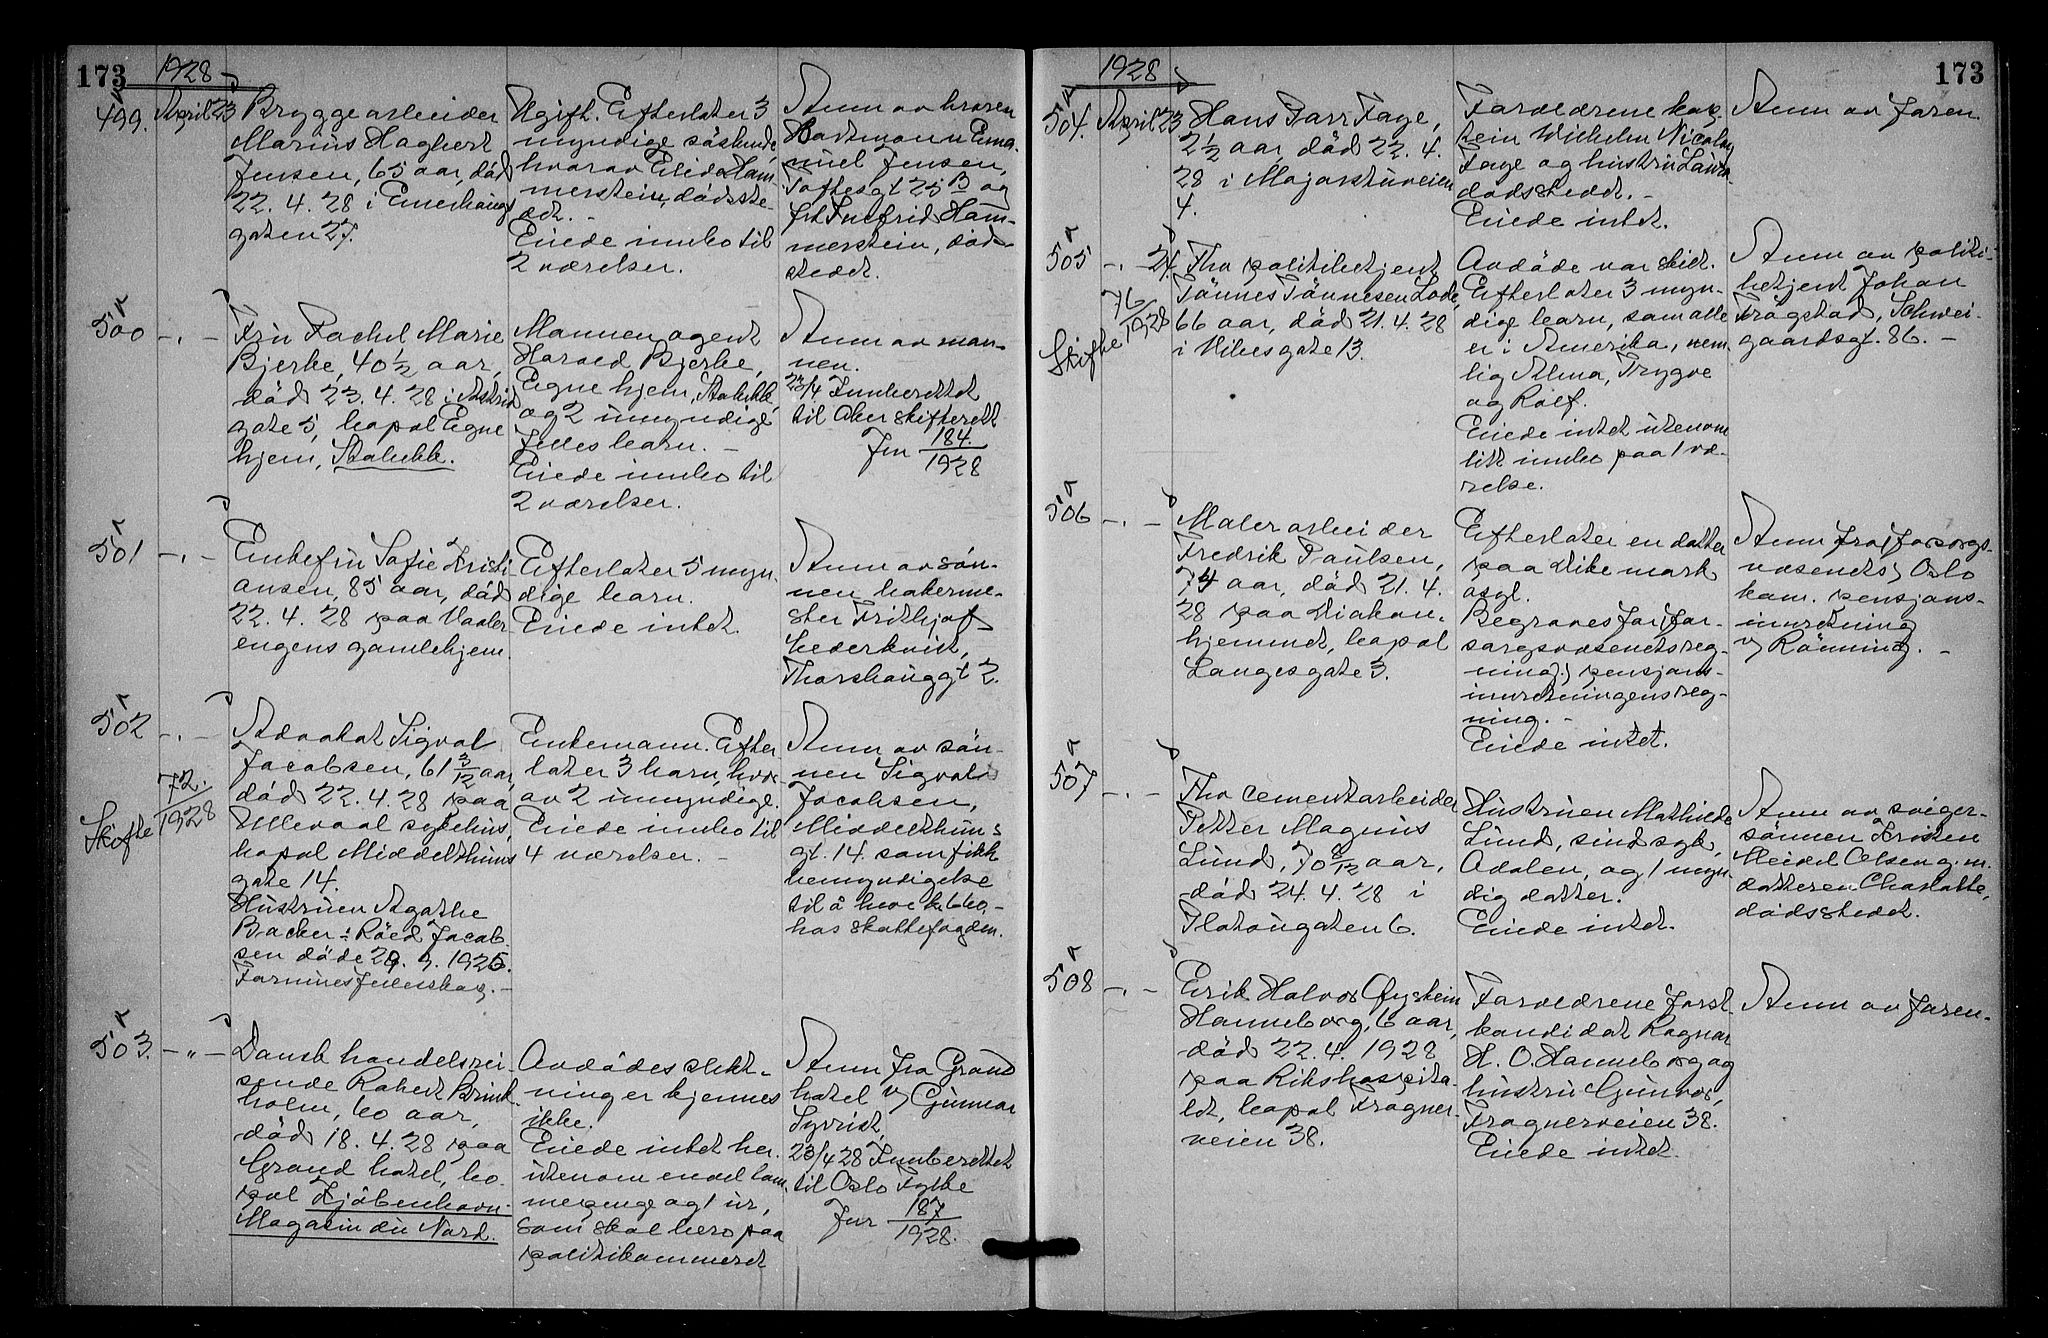 173
1928
499. April 23
Bryggearbeider
Marius Hagbert
Jensen, 65 aar, död
22. 4. 28 i Enerhaug
gaten 27.
Ugift. Efterlater 3
myndige söskende,
hvorav Elida Ham-
merstein, dödsste-
det. -
Eiede innbo til
2 værelser.
Anm av broren
Hartmann Ema-
nuel Jensen,
Toftesgt 25 B og
frk Ham-
merstein, död-
stedet.
500 -.-
Fru Rachel Marie
Bjerke, 40 1/2 aar,
död 23. 4. 28 i Astrids
gate 5, bopæl Egne
hjem, Stabekk.
Mannen agent
Harald Bjerke,
Egne hjem, Stabekk,
og 2 umyndige
felles barn. -
Eiede innbo til
2 værelser.
Anm av man-
nen.
23/4 Innberettet
til Aker skifterett
Jnr 184/1928
501 -.-
Enkefru Sofie Kristi-
ansen, 85 aar, död
22. 4. 28 paa Vaaler-
engens gamlehjem.
Efterlater 5 myn-
dige barn.
Eiede intet.
Anm av sön-
nen bakerme-
ster Frithjof
Cederkvist,
Thorshauggt 2.
502 -.-
Skifte 72./1928
Advokat Sigval
Jacobsen, 61 3/12 aar,
död 22. 4. 28 paa
Ullevaal sykehus,
bopæl Middelthuns
gate 14.
Hustruen Agathe
Backer Röed Jacob-
sen döde 29. 9. 1925.
Formuesfelleskap. -
Enkemann. Efter-
later 3 barn, hvor-
av 2 umyndige.
Eiede innbo til
4 værelser. -
Anm av sön-
nen Sigval
Jacobsen,
Middelthuns
gt. 14. som fikk
bemyndigelse
til å heve kr 660,-
hos skattefogden.
503. -"-
Dansk handelsrei-
sende Robert Brink-
holm, 60 aar,
död 18. 4. 28 paa
Grand hotel, bo-
pæl Kjöbenhavn
Magasin du Nord.
Avdödes slekt-
ninger kjennes
ikke.
Eiede intet her
utenom endel lom-
mepenge og 1 ur,
som skal bero paa
politikammeret
Anm fra Grand
hotel v/ Gunnar
Syvrist,
23/4 28 Innberettet
til Oslo Fylke
Jnr 187/1928.
173
1928
504. April 23
Hans Parr Faye,
2 1/2 aar, död 22. 4.
28 i Majorstuveien
4.
Forældrene kap-
tein Wilhelm Nicolay
Faye og hustru Laura
dödsstedet. -
Eiede intet.
Anm av faren.
505 -.- 24.
Skifte 76/1928
Fhv politibetjent
Tönnes Tönnesen Lode,
66 aar, död 21. 4. 28
i Vibesgate 13.
Avdöde var skilt.
Efterlater 3 myn-
dige barn, som alle
er i Amerika, nem-
lig Alma, Trygve
og Rolf.
Eiede intet utenom
litt innbo paa 1 væ-
relse.
Anm av politi-
betjent Johan
Frögstad, Schwei-
gaardsgt. 86. -
506 -.-
Malerarbeider
Fredrik Paulsen,
74 aar, död 21. 4.
28 paa Diakon-
hjemmet, bopæl
Langesgate 3.
Efterlater en datter
paa Dikemark
asyl.
Begraves for (for-
sorgsvæsenets reg-
ning) pensjons-
innretningens reg-
ning. -
Eiede intet.
Anm fra (forsorgs-
væsenets) Oslo
kom. pensjons-
innretning
v/ Rönning. -
507 -.-
Fhv cementarbeider
Petter Magnus
Lund, 70 8/12 aar,
död 24. 4. 28 i
Platougaten 6.
Hustruen Mathilde
Lund, sindssyk,
Ådalen, og 1 myn-
dig datter.
Eiede intet.
Anm av sviger-
sönnen Kristen
Meidel Olsen g. m.
datteren Charlotte,
dödsstedet.
508 -.-
Erik Halvor Øystein
Hanneborg, 6 aar,
död 22. 4. 1928
paa Rikshospita-
let, bopæl Frogner-
veien 38.
Forældrene forst-
kandidat Ragnar
H. O. Hanneborg og
hustru Gunvor,
Frognerveien 38.
Eiede intet.
Anm av faren.